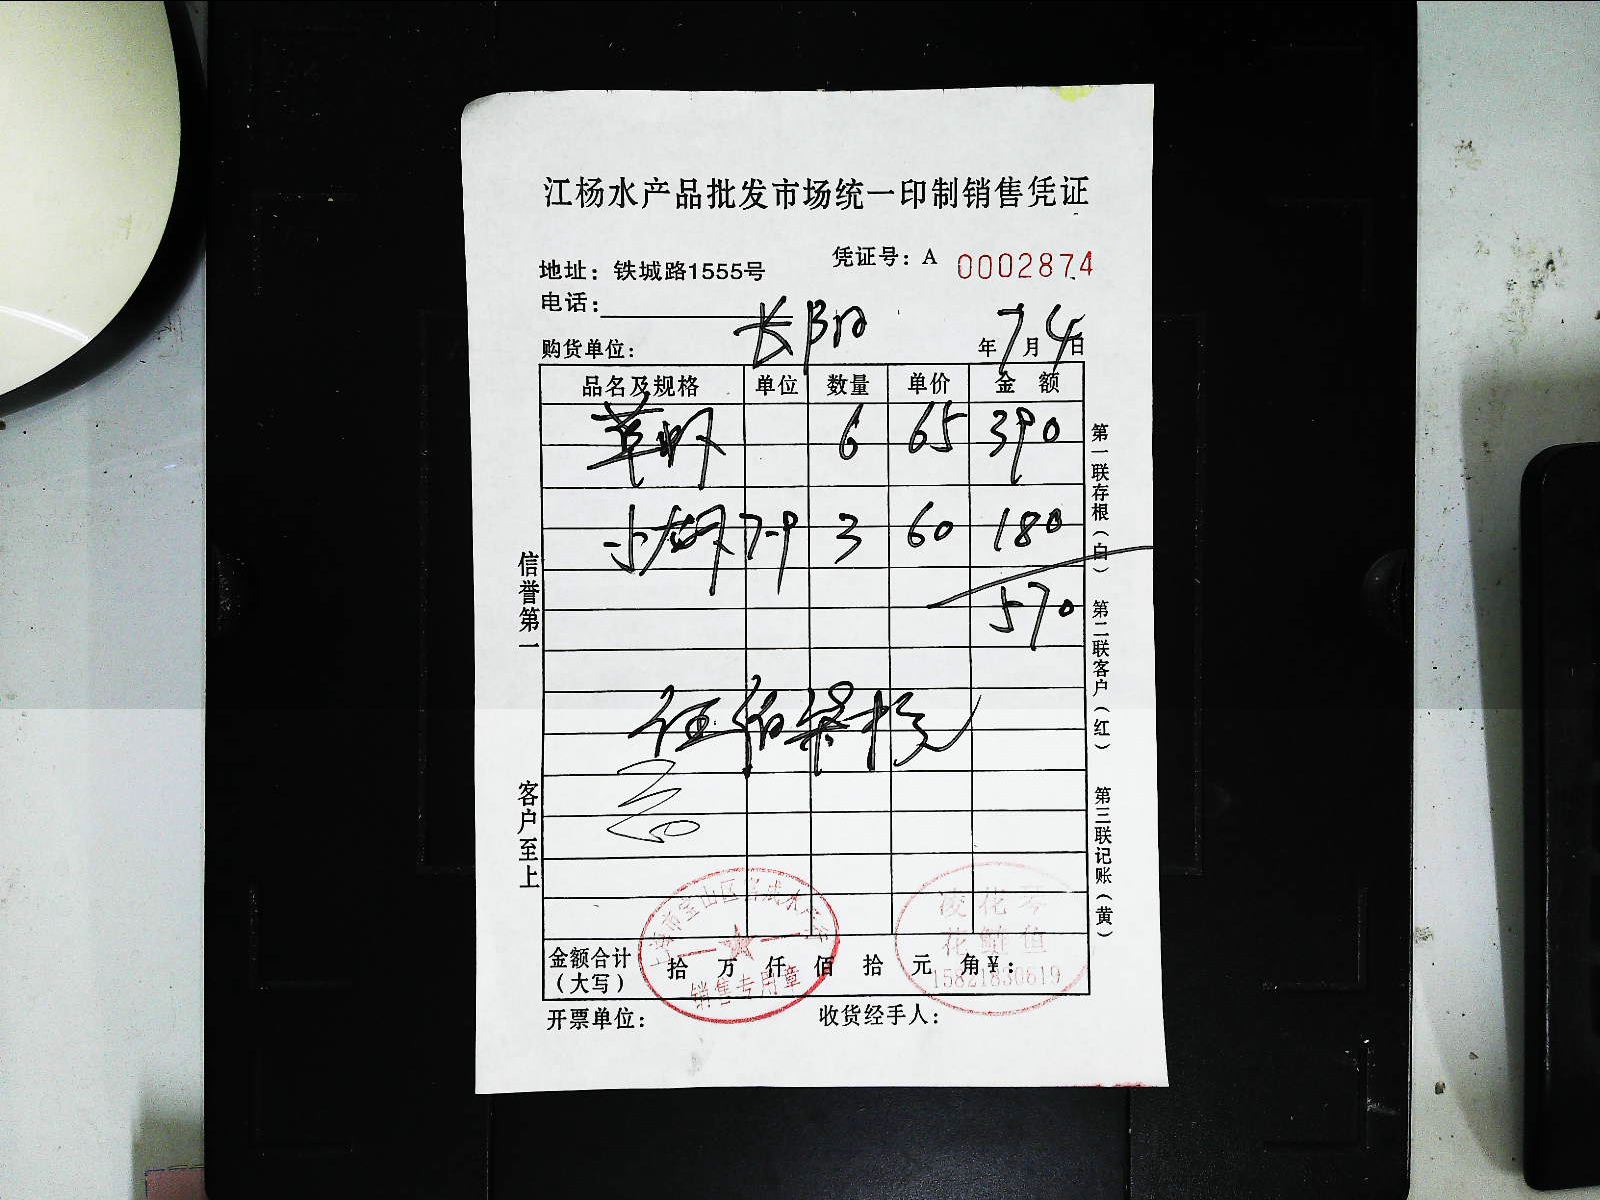 江杨水产品批发市场统一印制销售凭证
凭证号：A 0002874
地址：铁城路1555号
电话：
购货单位： 长阳 年 7 月 4 日
品名及规格 单位 数量 单价 金 额
草虾 6 65 390
小龙虾 7-9 3 60 180
570
信誉第一
客户至上
第一联存根（白） 第二联客户（红） 第三联记账（黄）
金额合计（大写） 拾 万 仟 佰 拾 元 角 ¥：
销售专用章
凌花琴
花鲢鱼
15821830619
开票单位： 收货经手人：